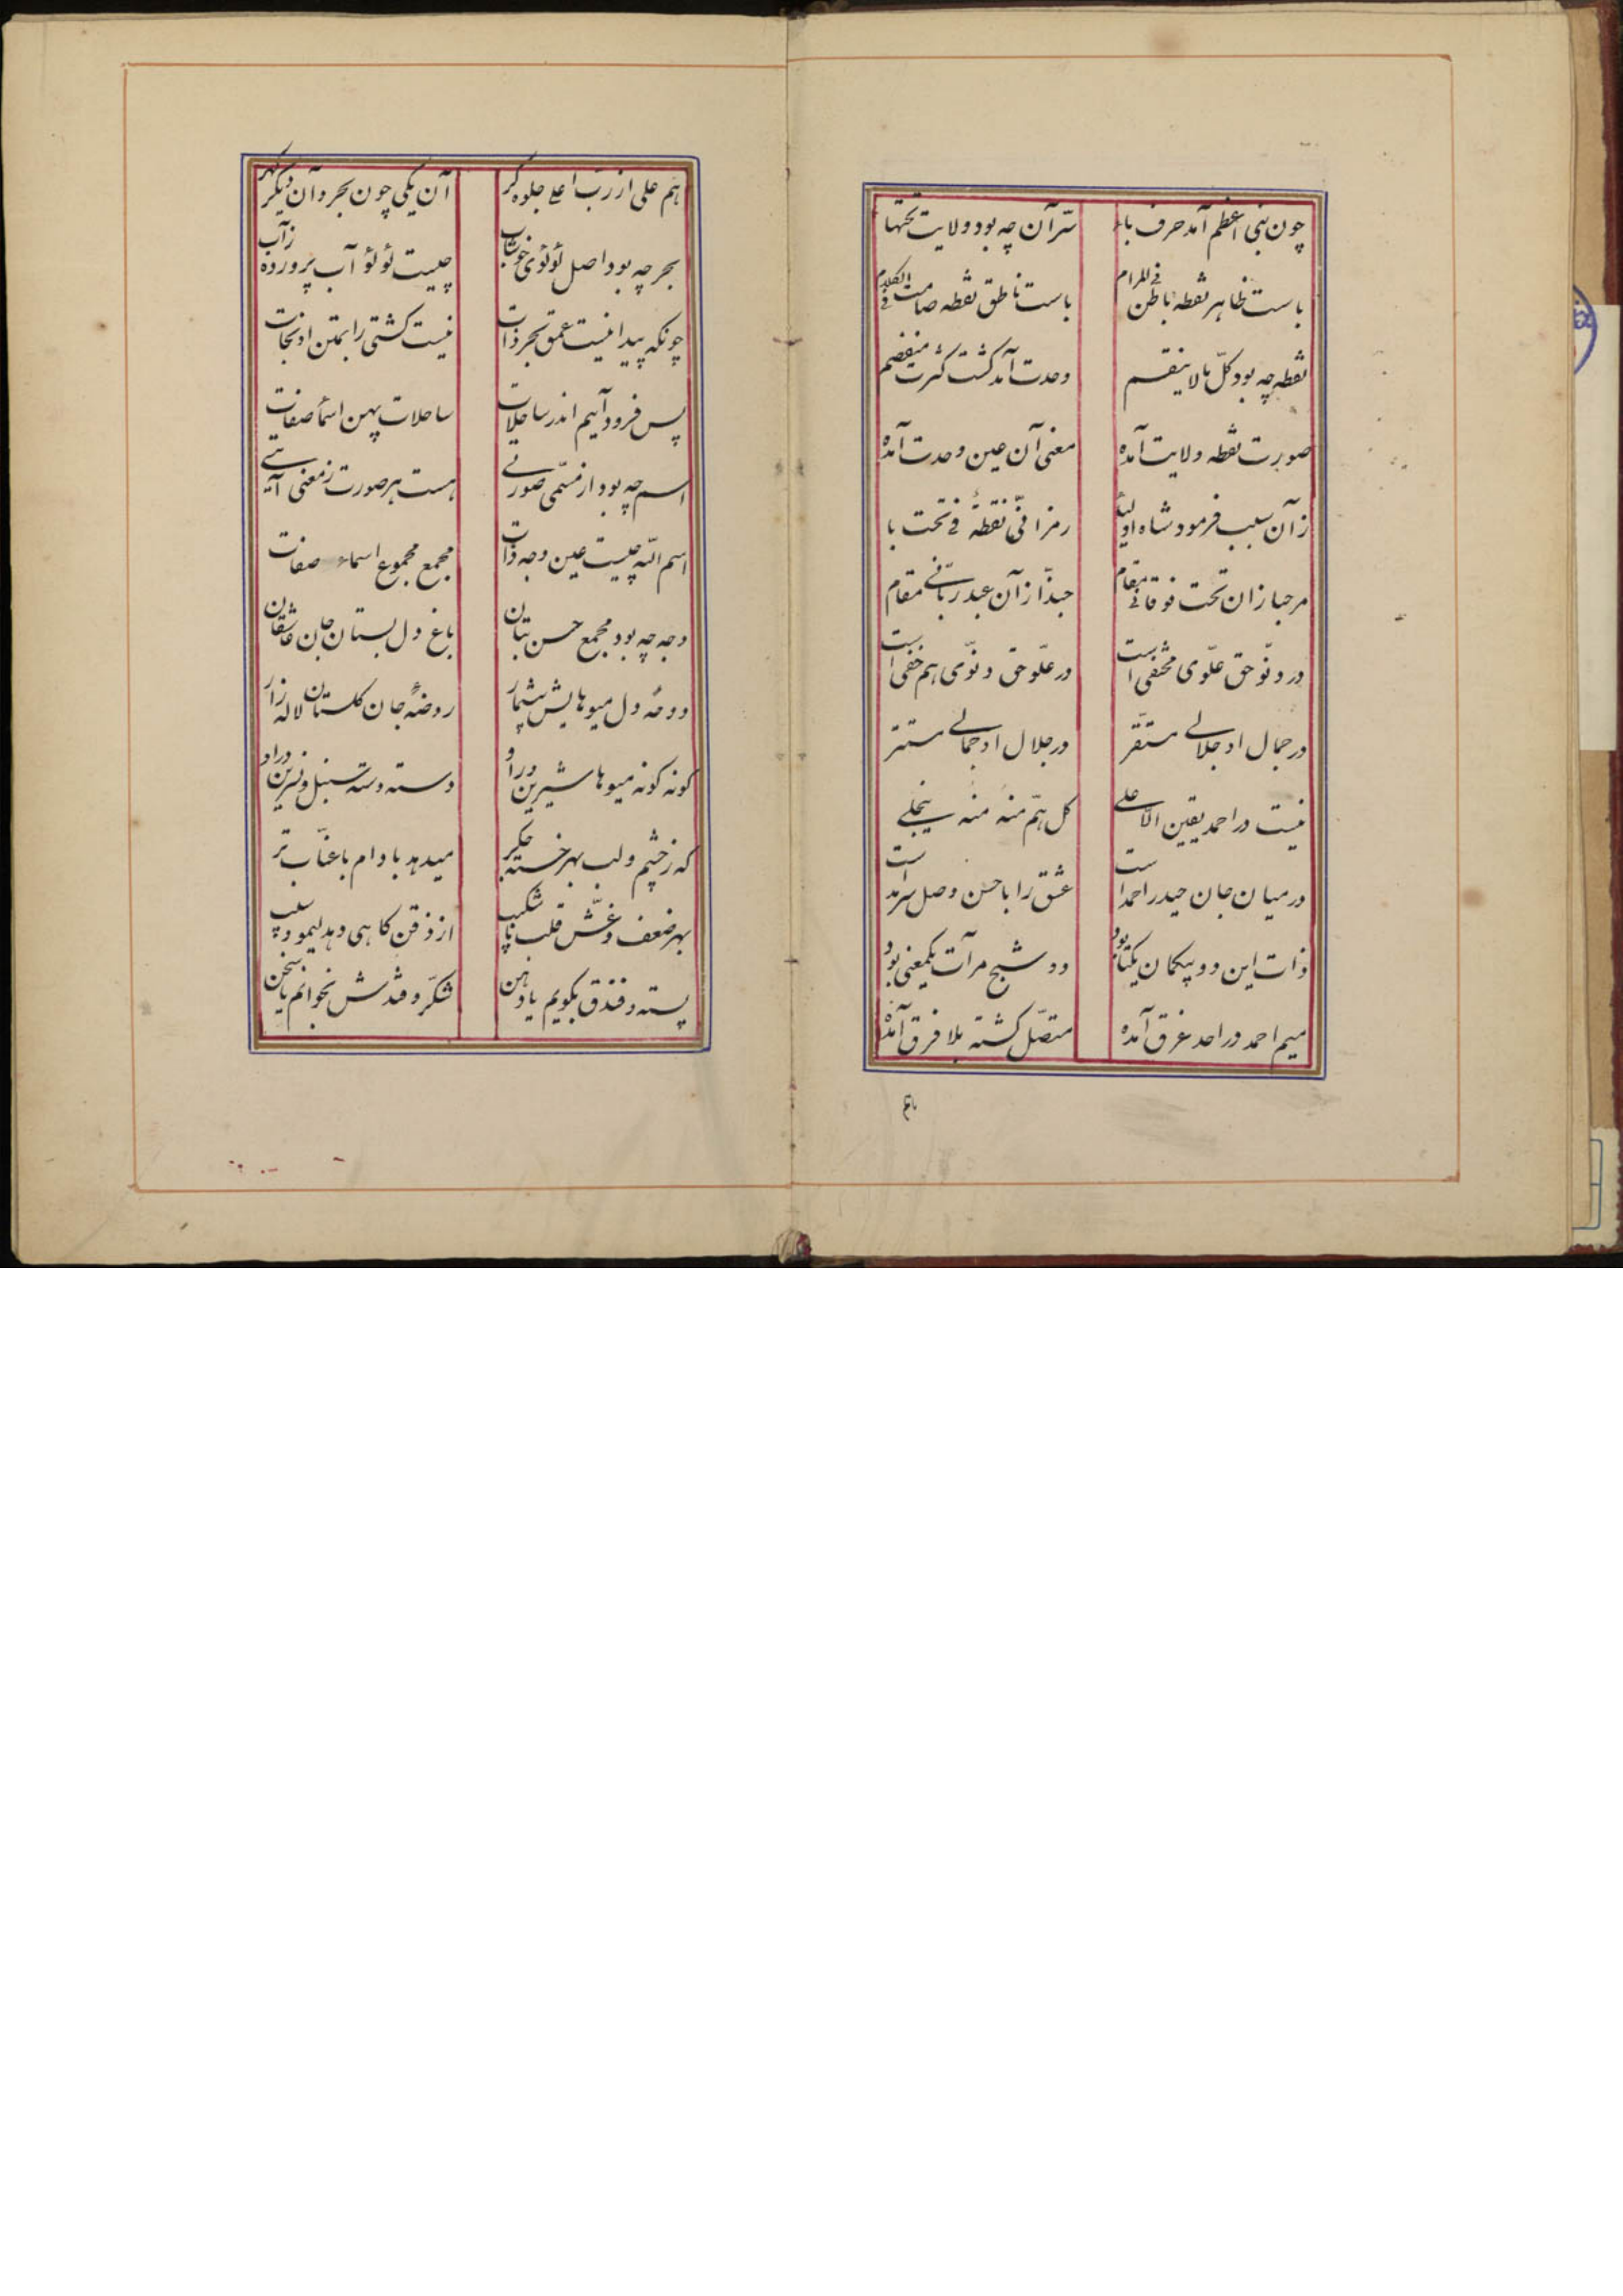 چون نبی اعظم آمد حرف باء سرّ آن چه بود ولایت تحتها
باست ظاهر نقطه باطن فی المرام باست ناطق نقطه صامت فی الکلام
نقطه چه بود کلّ ما لا ینقسم وحدت آمد کشت کثرت منفصم
صورت نقطه ولایت آمده معنی آن عین وحدت آمده
زآن سبب فرمود شاه اولیا رمز انّی نقطة فی تحت با
مرحبا زان تحت فوقانی مقام حبذّا زآن عبد ربّانی مقام
در دنوّ حق علّوی مختفی است در علّو حق دنوّی هم خفی است
در جمال او جلالی مستقر در جلال او جمالی مستتر
نیست در احمد یقین الاّ علی کل همّ منه منه ینجلی
در میان جان حیدر احمد است عشق را با حسن وصل سرمد است
ذات این دو بیکمان یکتا بود دو شبح مرآت یکمعنی بود
میم احمد در احد غرق آمده متصّل کشته بلا فرق آمده
هم علی از رب اعلی جلوه کر آن یکی چون بحر و آن دیکر کهر
بحر چه بود اصل لؤلؤی خوشاب چیست لؤلؤ آب پرورده ز آب
چونکه پیدا نیست عمق بحر ذات نیست کشتی را بمتن او نجات
پس فرود آییم اندر ساحلات ساحلات پهن اسماء صفات
اسم چه بود از مسمّی صورتی هست هر صورت ز معنی آیتی
اسم اللّه چیست عین وجه ذات مجمع مجموع اسماء صفات
وجه چه بود مجمع حسن بتان باغ دل بستان جان عاشقان
دوحه دل میوهایش بیشمار روضهٔ جان کلستان لاله زار
کونه کونه میوها شیرین در او دسته دسته سنبل و نسرین در او
که ز چشم و لب بهر خسته جکر میدهد بادام با عنّاب تر
بهر ضعف و غشّ قلب ناشکیب از ذقن کاهی دهد لیمو و سیب
پسته و فندق بکویم یا دهن شکّر و قندش بخوانم یا سخن